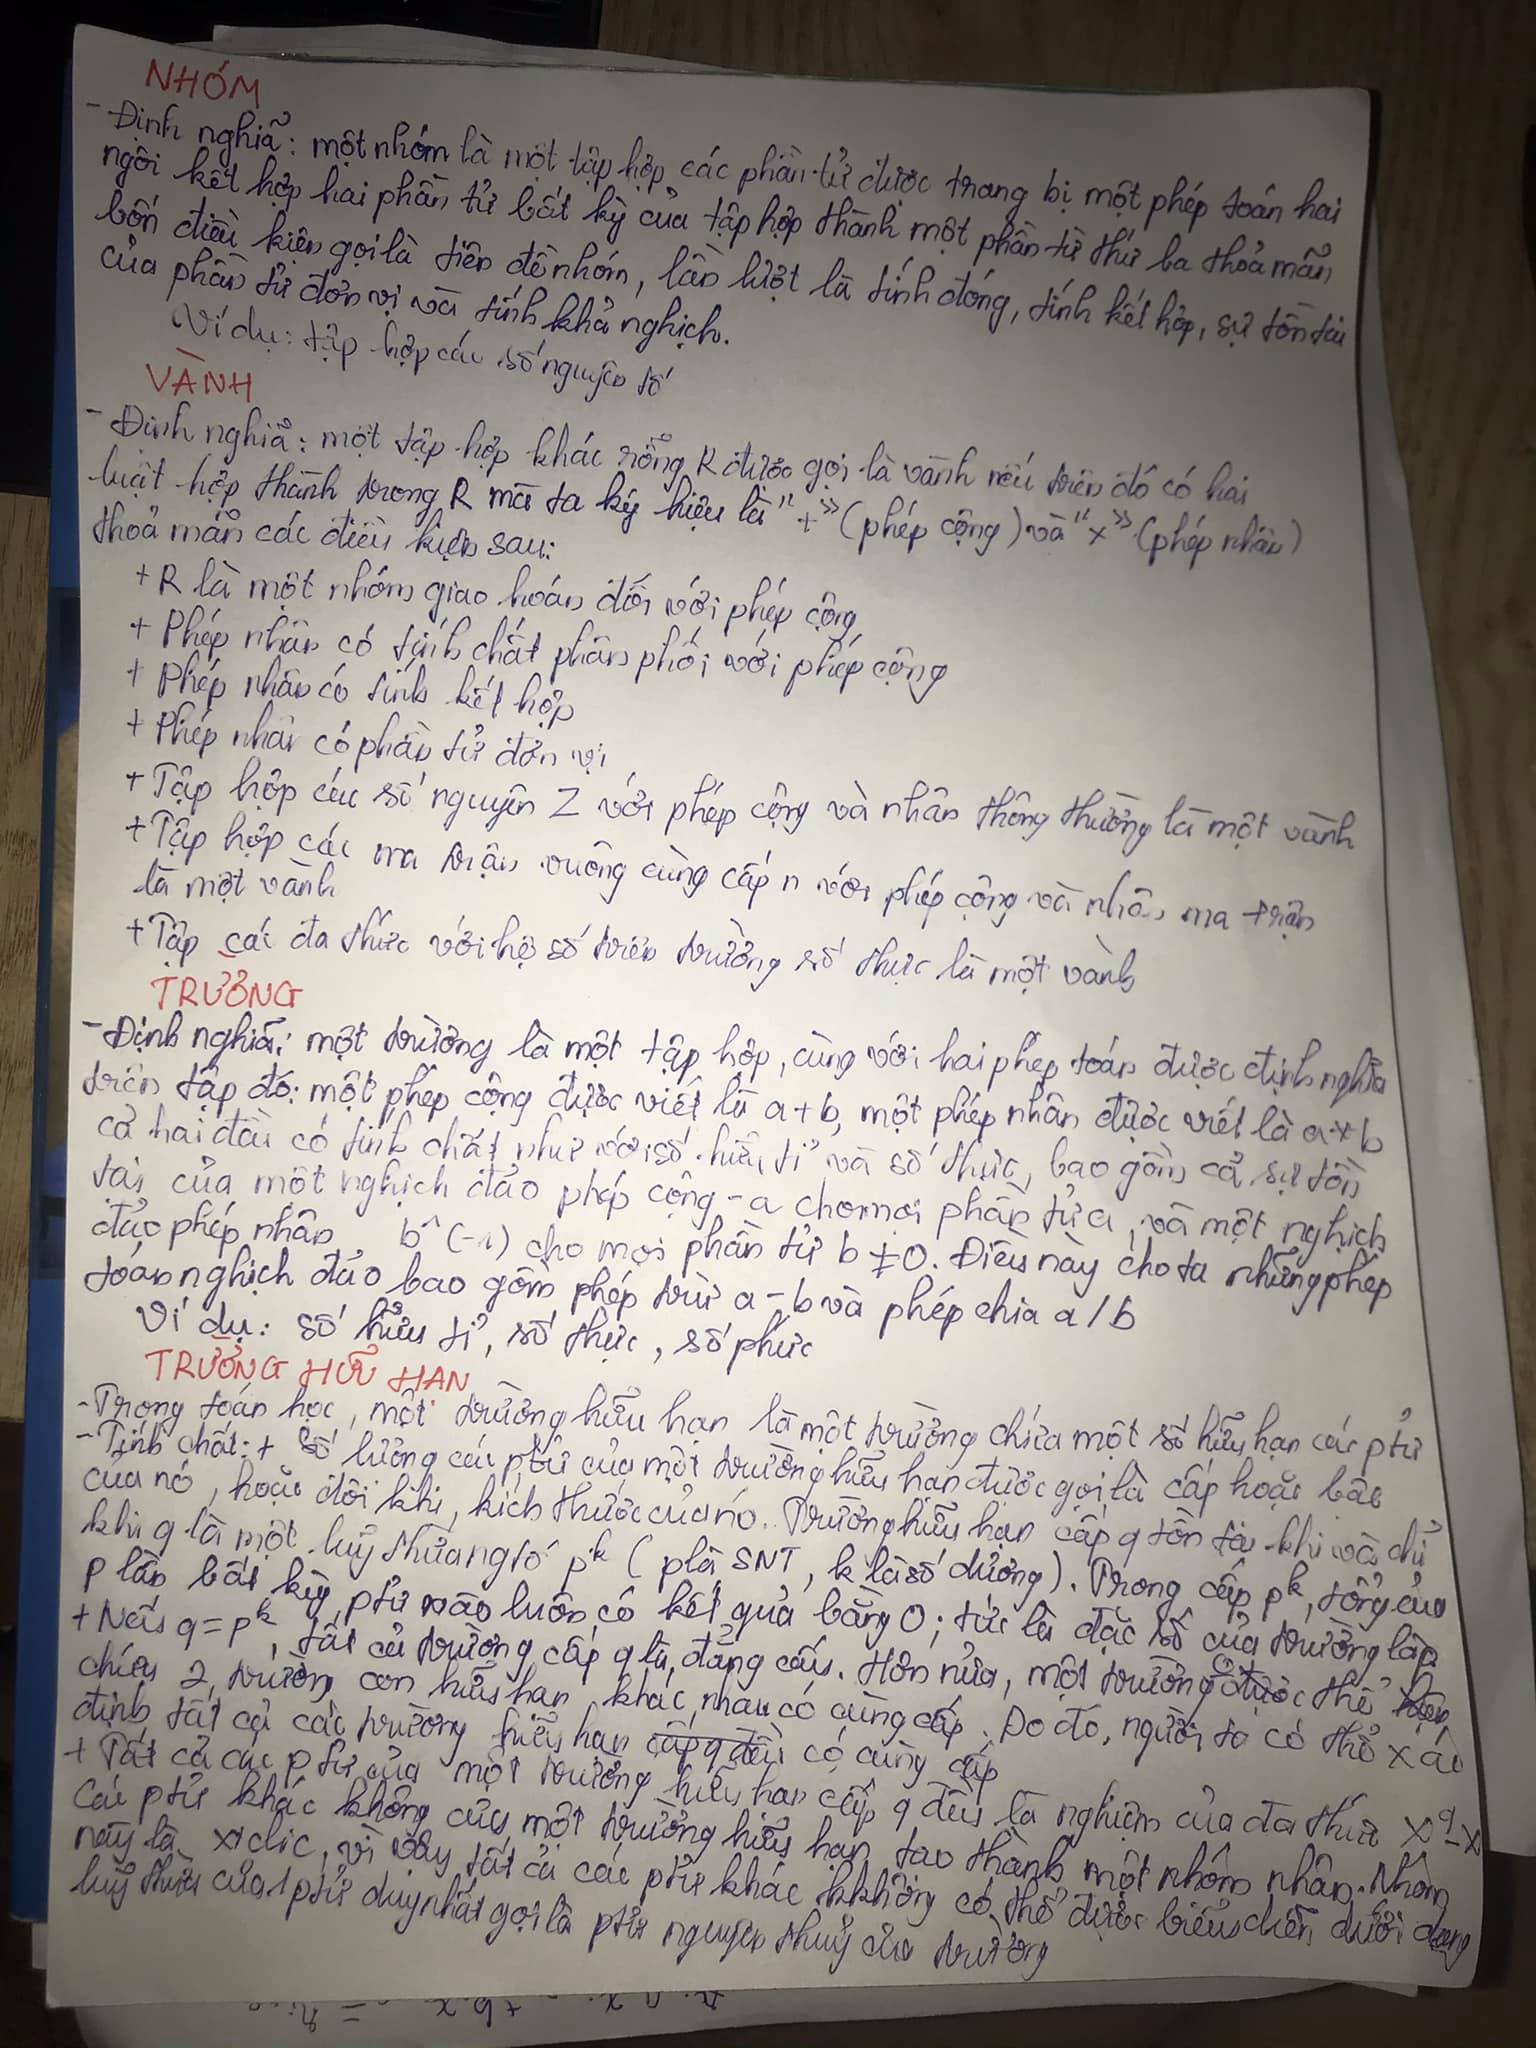 NHÓM
- Định nghiã: một nhóm là một tập hợp các phần tử được trang bị một phép toán hai
ngôi kết hợp hai phần tử bất kỳ của tập hợp thành một phần tử thứ ba thoả mãn
bốn điều kiện gọi là tiên đề nhóm, lần lượt là tính đóng, tính kết hợp, sự tồn tại
của phần tử đơn vị và tính khả nghịch.
Ví dụ: tập hợp các số nguyên tố
VÀNH
- Định nghiã: một tập hợp khác rỗng R được gọi là vành nếu trên đó có hai
luật hợp thành trong R mà ta ký hiệu là "+" (phép cộng) và "x" (phép nhân)
thoả mãn các điều kiện sau:
+ R là một nhóm giao hoán đối với phép cộng
+ Phép nhân có tính chất phân phối với phép cộng
+ Phép nhân có tính kết hợp
+ Phép nhân có phần tử đơn vị
+ Tập hợp các số nguyên Z với phép cộng và nhân thông thường là một vành
+ Tập hợp các ma trận vuông cùng cấp n với phép cộng và nhân ma trận
là một vành
+ Tập các đa thức với hệ số trên trường số thực là một vành
TRƯỜNG
- Định nghiã: một trường là một tập hợp, cùng với hai phép toán được định nghĩa
trên tập đó: một phép cộng được viết là a+b, một phép nhân được viết là a*b
cả hai đều có tính chất như với số hữu tỉ và số thực, bao gồm cả sự tồn
tại của một nghịch đảo phép cộng -a cho mọi phần tử a, và một nghịch
đảo phép nhân b^(-1) cho mọi phần tử b ≠ 0. Điều này cho ta những phép
toán nghịch đảo bao gồm phép trừ a-b và phép chia a/b
Ví dụ: số hữu tỉ, số thực, số phức
TRƯỜNG HỮU HẠN
- Trong toán học, một trường hữu hạn là một trường chứa một số hữu hạn các ptử
- Tính chất: + Số lượng các ptử của một trường hữu hạn được gọi là cấp hoặc bậc
của nó, hoặc đôi khi, kích thước của nó. Trường hữu hạn cấp q tồn tại khi và chỉ
khi q là một luỹ thừa ngtố p^k (p là SNT, k là số dương). Trong cấp p^k, tổng của
p lần bất kỳ ptử nào luôn có kết quả bằng 0; tức là đặc số của trường là p
+ Nếu q=p^k, tất cả trường cấp q là đẳng cấu. Hơn nữa, một trường được thể
chứa 2 trường con hữu hạn khác nhau có cùng cấp. Do đó, người ta có thể xác
định tất cả các trường hữu hạn có cùng cấp
+ Tất cả các ptử của một trường hữu hạn cấp q đều là nghiệm của đa thức x^q-x
Các ptử khác không của một trường hữu hạn tạo thành một nhóm nhân. Nhóm
này là xiclic, vì vậy tất cả các ptử khác kkhông có thể được biểu diễn dưới dạng
luỹ thừa của 1 ptử duy nhất gọi là ptử nguyên thuỷ của trường